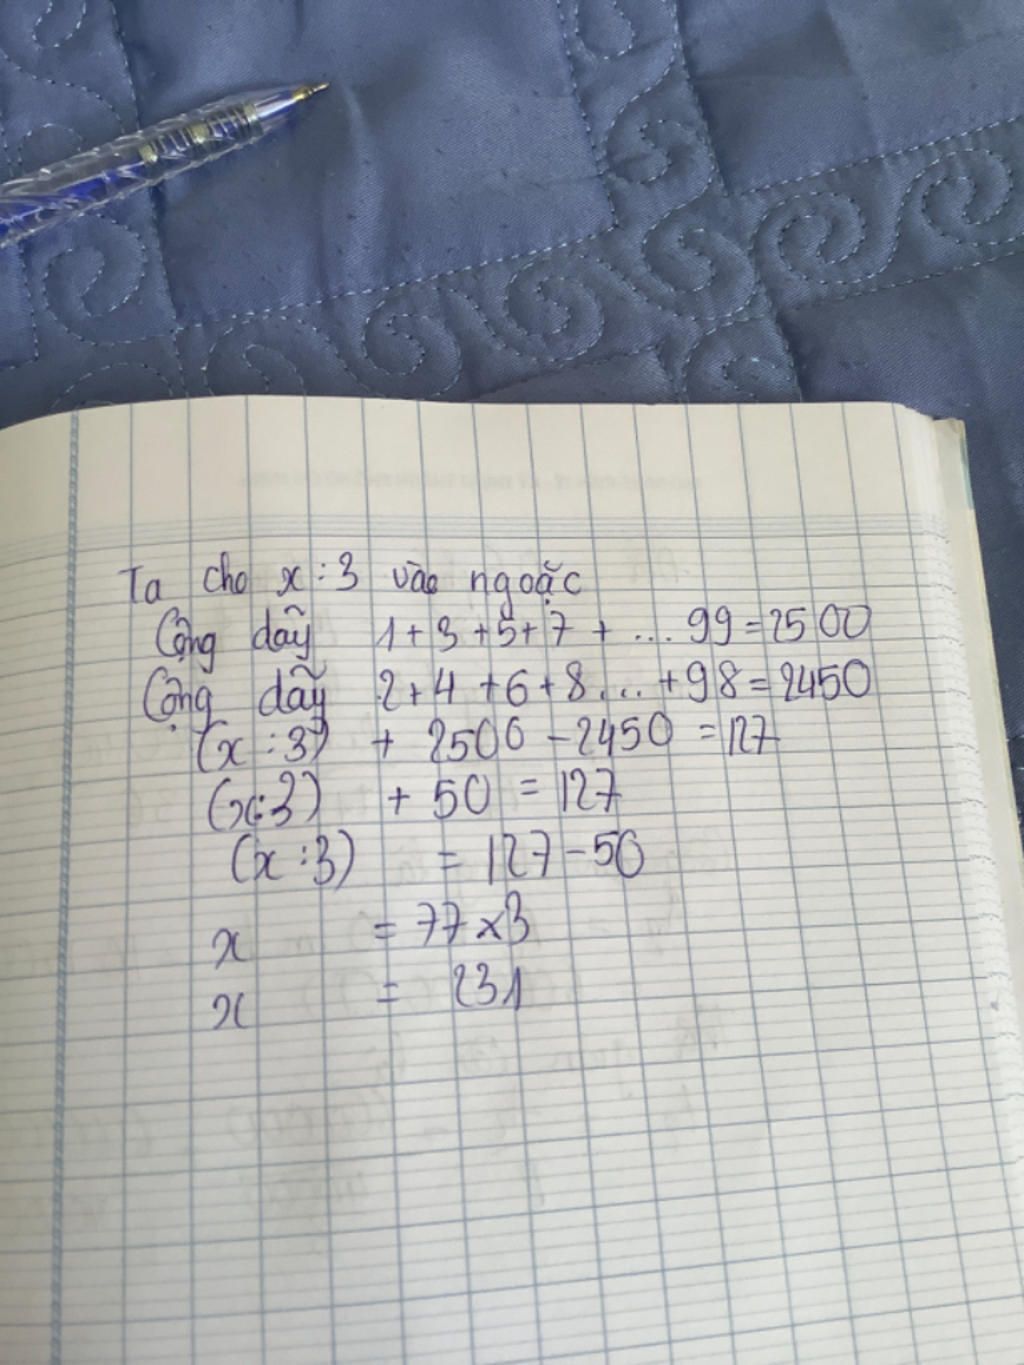 Ta cho x : 3 vào ngoặc
Cộng dãy 1 + 3 + 5 + 7 + ... 99 = 2500
Cộng dãy 2 + 4 + 6 + 8 ... + 98 = 2450
(x : 3) + 2500 - 2450 = 127
(x : 3) + 50 = 127
(x : 3) = 127 - 50
x = 77 x 3
x = 231